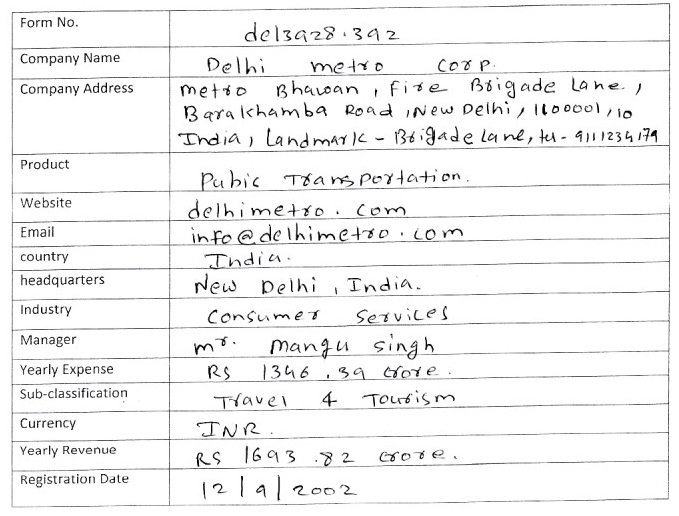 Form No. del3928.392
Company Name Delhi metro Corp.
Company Address metro Bhawan, Fire Brigade Lane,
Barakhamba Road, New Delhi, 1100001, 10
India, Landmark - Brigade Lane, tel - 9111234179
Product Pubic Transportation.
Website delhimetro.com
Email info@delhimetro.com
country India.
headquarters New Delhi, India.
Industry Consumer Services
Manager mr. mangu singh
Yearly Expense RS 1346.39 crore.
Sub-classification Travel & Tourism
Currency INR.
Yearly Revenue RS 1693.82 crore.
Registration Date 12/9/2002